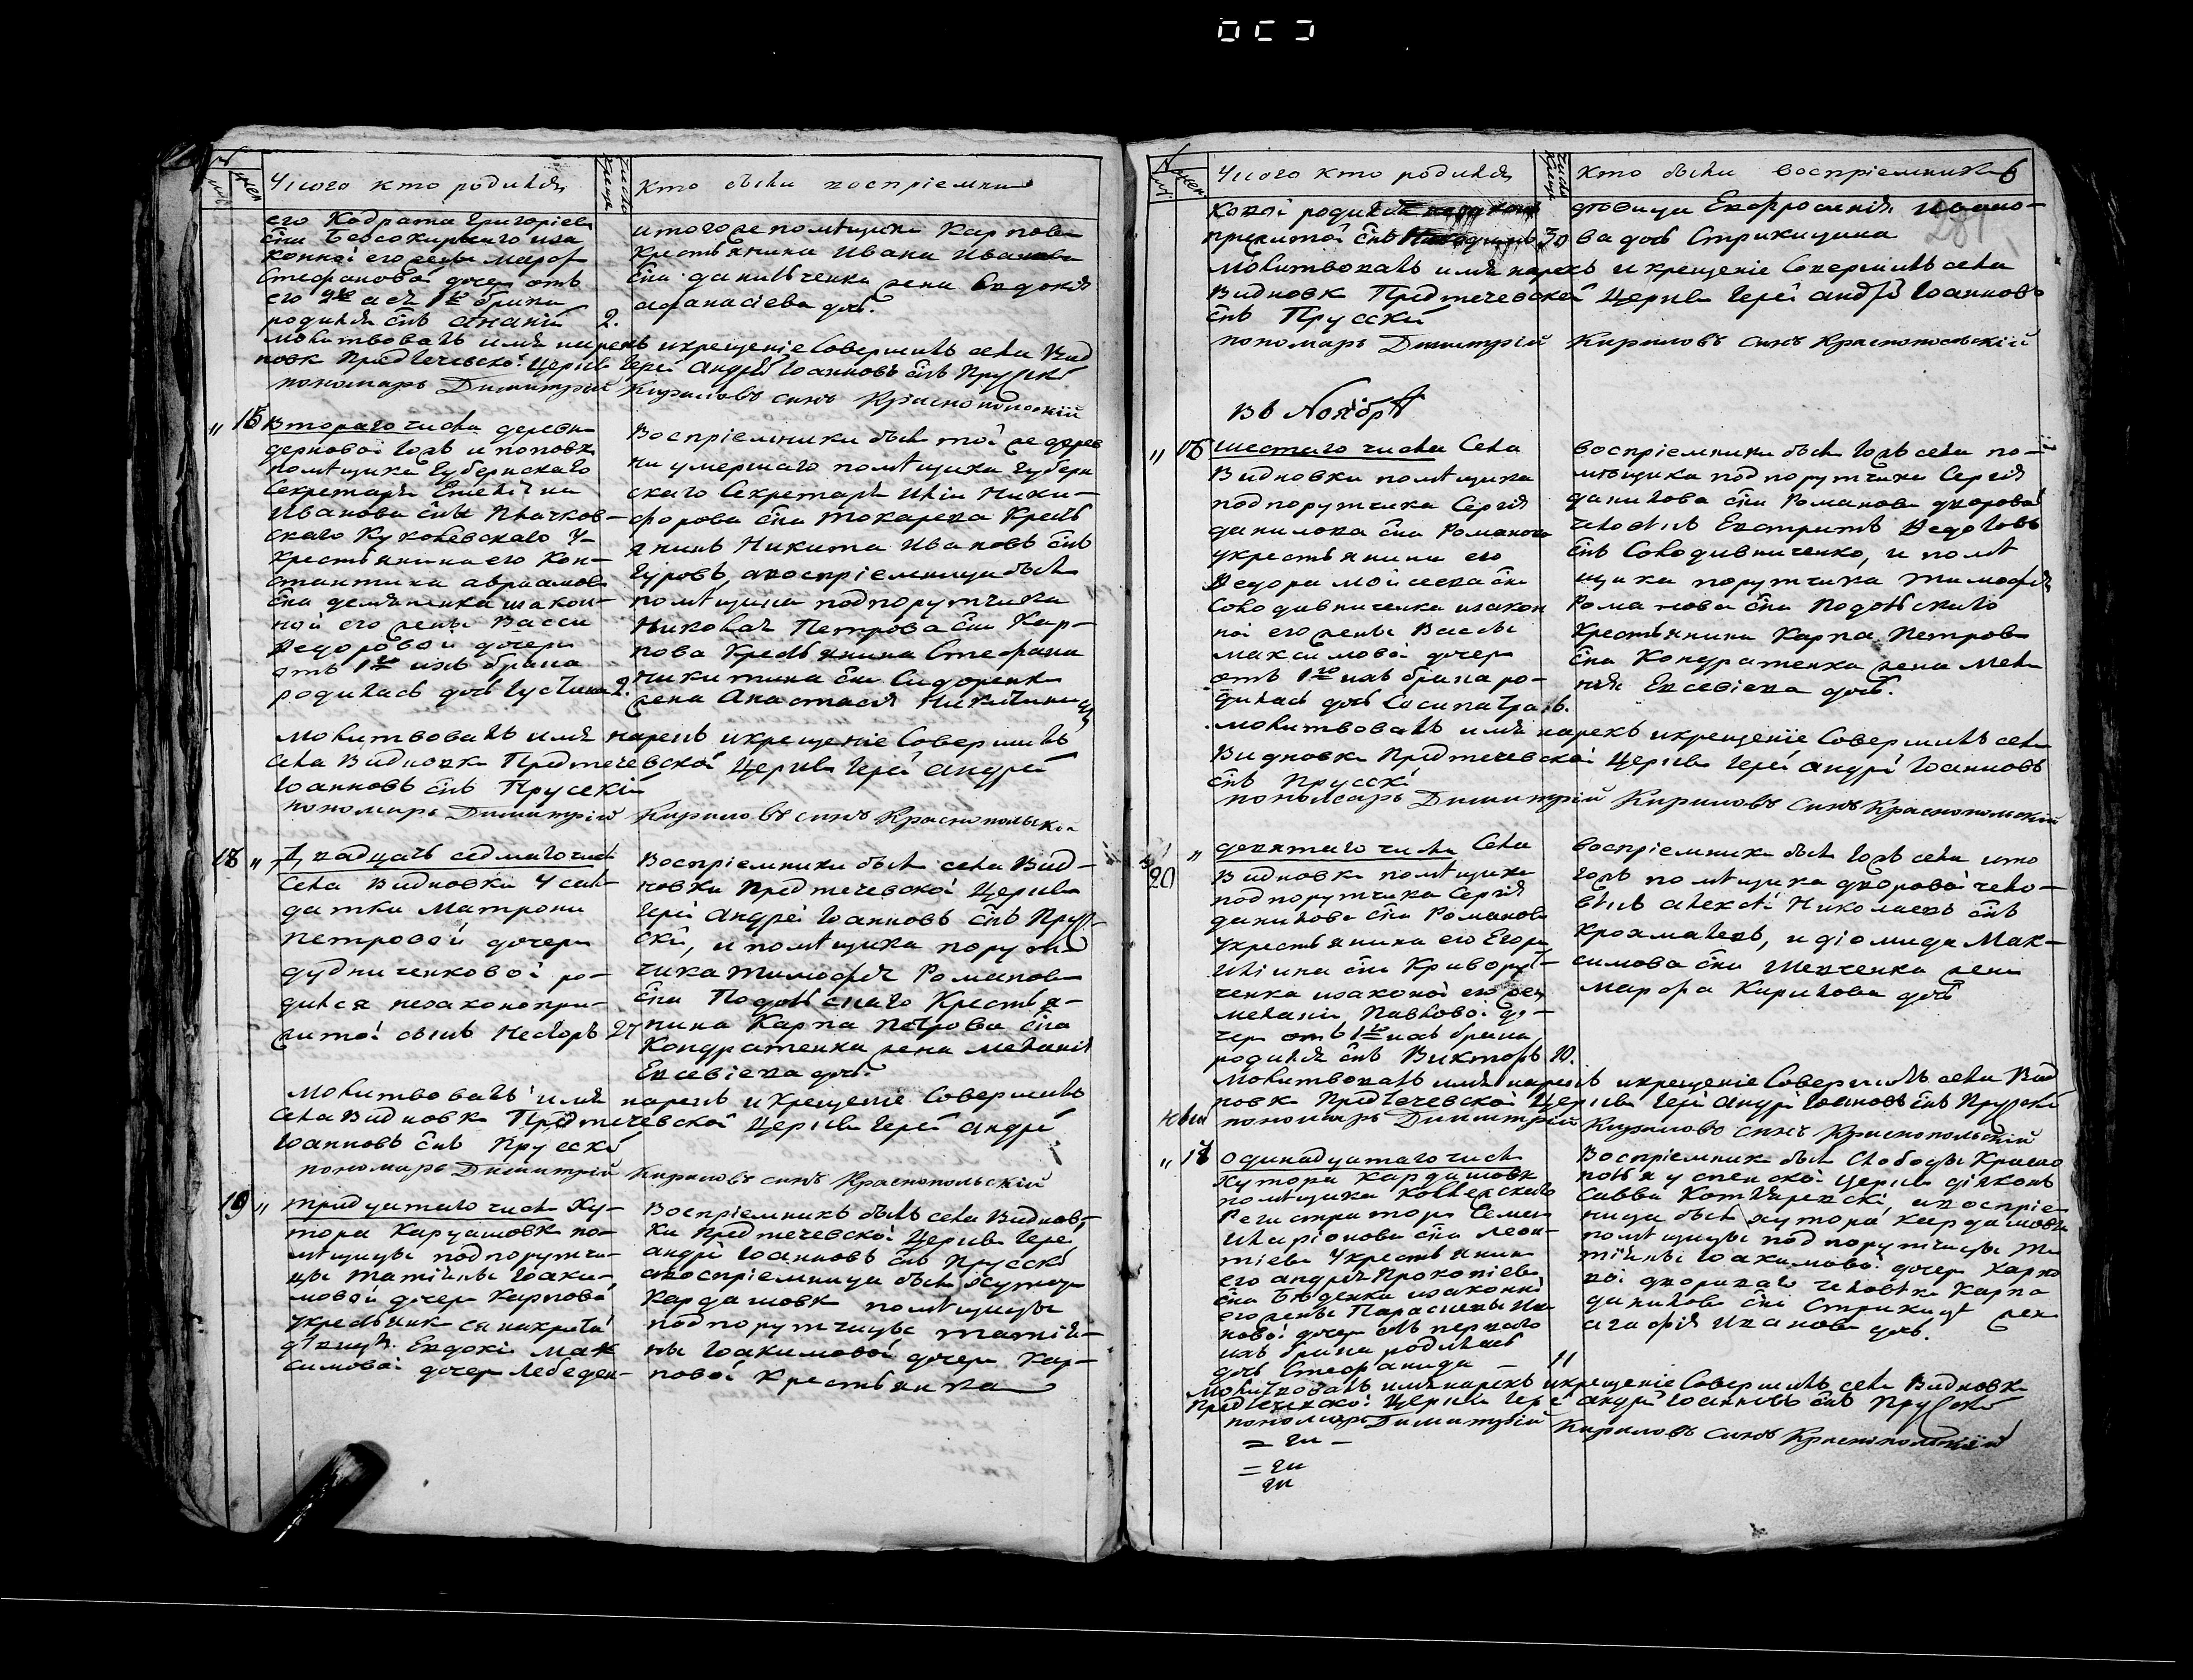 Число кто родился
Кто были восприемники
его Кодрата Григориева
сна Безсокирнаго иза
конной его жены Марфы
Стефановой дочери отъ
его 1го брака
родился снъ Ананій 2.
итогоже помѣщика Карпова
крестьянина Ивана Иванова
сна Данильченка жена Евдокія
Афанасіева дочь.
молитвовалъ имя нарекъ и крещеніе совершилъ села Вид
новк Предтечевской Церкви Іерей Андрей Іоанновъ снъ Прускій
пономарь Димитрій Кириловъ синъ Краснопольскій
" 15 Втораго числа деревни
дерновой Голъ и поповки
помѣщика Губернскаго
Секретаря
Иванова сна Плачков-
скаго Куколевскаго у
крестьянина его Кон-
стантина Авраамова
сна Демяненка изакон-
ной его жены Васси
Ѳедоровой дочери
отъ 1го ихъ брака
родилась дочь Іустина 2.
Восприемники были той же дерев
ни умершаго помѣщика Губерн
скаго Секретаря Ильи Ники-
форова сна Токарева Крест
янинъ Никита Ивановъ снъ
Гуровъ, авосприемница была
помѣщика подпорутчика
Николая Петрова сна Кар-
пова крестьянина Стефана
Никитина сна Сидоренк
жена Анастасія Никитина д
молитвовалъ имя нарекъ и крещеніе совершилъ
села Видновки Предтечевской Церкви Іерей Андрей
Іоанновъ снъ Прускій
пономарь Димитрій Кириловъ синъ Краснопольскій
18 " Двадцать седмаго числа
Села Видновки у сол-
датки Матрони
Петровой дочери
дудниченковой ро-
дился незаконопри-
житой сынъ Несторъ 27
Восприемники были села Вид-
новки Предтечевской Церкви
Іерей Андрей Іоанновъ снъ Прус-
скій, и помѣщика порутт
чика Тимофея Романова
сна Подольскаго Крестья-
нина Карпа Петрова сна
Кондратенка жена Меланія
Евсевіева дочь.
Молитвовалъ имя нарекъ и крещеніе Совершилъ
Села Видновк Предтечевской Церкви Іерей Андрей
Іоанновъ снъ Прускій
пономарь Димитрій Кириловъ синъ Краснопольскій
19 " Тридцатаго числа Ху-
тора Кардашовк по-
мѣщицы подпорутчи-
цы Татіяны Іоаки-
мовой дочери Карповой
у крестьянк
дѣвицы Евдокіи Мак
симовой дочери Лебеден-
Восприемникъ былъ села Виднов-
ки Предтечевской Церкви Іерей
Андрей Іоанновъ снъ Прускій
авосприемница была Хутора
Кардашовк помѣщицы
подпорутчицы Татія-
ны Іоакимовой дочери Кар-
повой Крестьянка
Число кто родился
Кто были восприемники 6
281
ковой родился
прижитой снъ 30
дѣвица Евфросинія Ивано-
ва дочь Стрижицина
Молитвовалъ имя нарекъ и крещеніе Совершилъ села
Видновк Предтечевской Церкви Іерей Андрей Іоанновъ
снъ Прускій
пономарь Димитрій Кириловъ синъ Краснопольскій
Въ Ноябрѣ
" 16 Шестаго числа Села
Видновки помѣщика
подпорутчика Сергія
Данилова сна Романова
у крестьянина его
Ѳедора Моисеева сна
Солодивниченка изакон
ной его жены Вассы
Максимовой дочери
отъ 1го ихъ брака ро-
дилась дочь Сосипатра 6.
восприемники были тогожъ села по-
мѣщика подпорутчика Сергія
Данилова сна Романова дворовой
человѣкъ Евстратъ Ѳедоровъ
снъ Солодивниченко, и помѣ
щика порутчика Тимофея
Романова сна Подольскаго
Крестьянина Карпа Петрова
сна Кондратенка жена Мела
нія Евсевіева дочь.
молитвовалъ имя нарекъ и крещеніе Совершилъ села
Видновк Предтечевской Церкви Іерей Андрей Іоанновъ
снъ Прускій
пономарь Димитрій Кириловъ синъ Краснопольскій
20 " Девятаго числа Села
Видновк помѣщика
подпорутчика Сергія
Данилова сна Романова
у крестьянина его Егора
Ильина сна Криворут-
ченка изаконой его жены
Меланіи Павловой до-
чери отъ 1го ихъ брака
родился снъ Викторъ 10.
восприемники были тогожъ села ито
гожъ помѣщика дворовой чело-
вѣкъ Алексѣй Николаевъ снъ
Крохмалевъ, и Діомида Мак-
симова сна Шевченка жена
Марфа Кирилова дочь
Молитвовалъ имя нарекъ и крещеніе Совершилъ села Вид
новк Предтечевской Церкви Іерей Андрей Іоанновъ снъ Прускій
пономарь Димитрій Кириловъ синъ Краснопольскій
" 18 одинадцатаго числа
Хутора Кардашовк
помѣщика Колежскаго
Регистратора Семена
Иларіонова сна Леон-
тіева у крестьянина
его Андрея Прокопіева
сна Бѣденка изаконной
его жены Параскевы Ива
новой дочери отъ перваго
ихъ брака родилась
дочь Стефанида — 11
Восприемник былъ Слободы Красно
полья успенской церкви діяконъ
Савва Котляревскій, авосприе-
мница была хутора Кардашовк
помѣщицы подпорутчицы Та
тіяны Іоакимовой дочери Карпо
вой двороваго человѣка Карпа
Данилова сна жена
Агафія Иванова дочь.
Молитвовалъ имя нарекъ и крещеніе Совершилъ села Видновк
Предтечевской Церкви Іерей Андрей Іоанновъ снъ Прускій
пономарь Димитрій Кириловъ синъ Краснопольскій